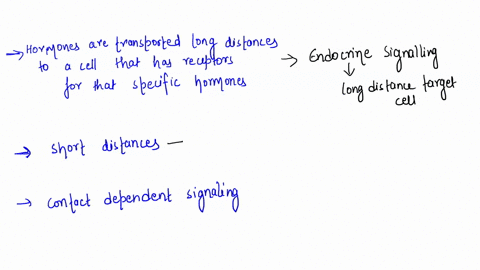 → Hormones are transported long distances
to a cell that has receptors
for that specific hormones
→ Endocrine Signalling
↓
long distance target
cell
→ short distances —
→ contact dependent signaling